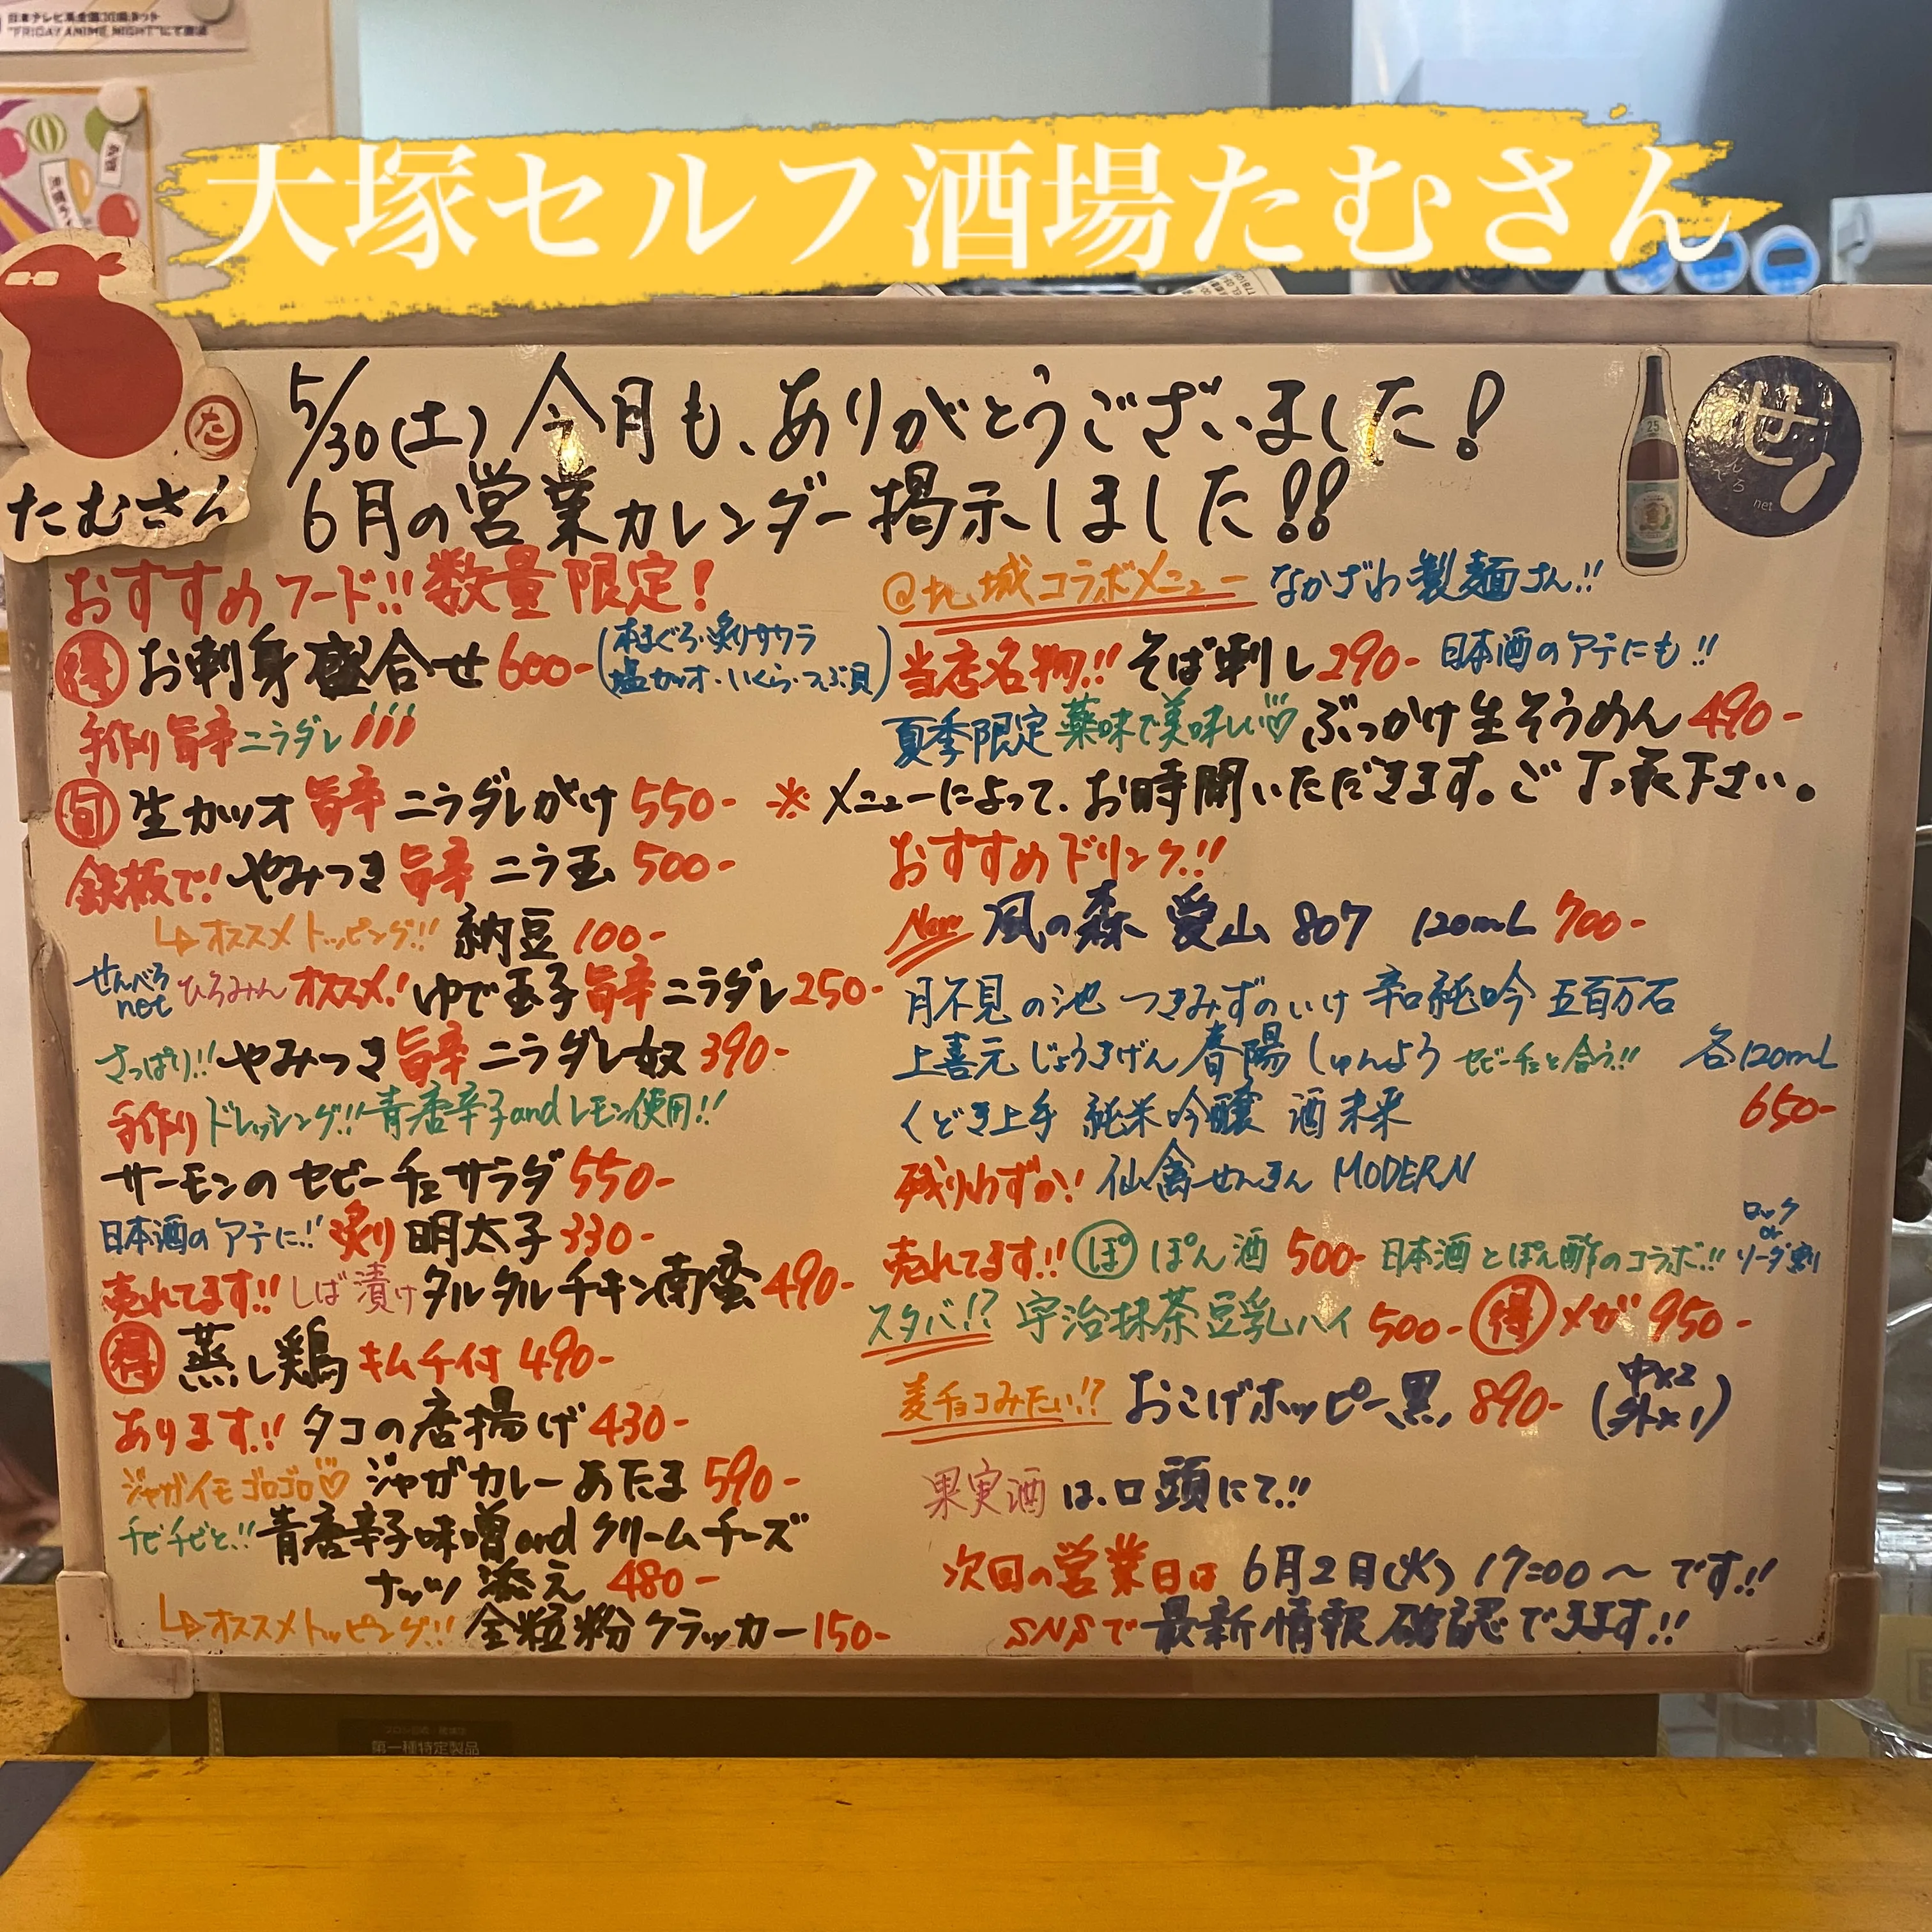 日本テレビ系全国30局ネット
"FRIDAY ANIME NIGHT"にて放送
大塚セルフ酒場たむさん
た
たむさん
25
せ
んべろ
net
5/30(土) 今月も、ありがとうございました!
6月の営業カレンダー掲示しました!!
おすすめフード!! 数量限定!
得 お刺身盛合せ 600- (本まぐろ・炙りサワラ
塩カツオ・いくら・つぶ貝)
手作り旨辛ニラダレ
旬 生カツオ 旨辛 ニラダレがけ 550-
鉄板で! やみつき 旨辛 ニラ玉 500-
↳オススメトッピング!! 納豆 100-
せんべろnet ひろみん オススメ! ゆで玉子 旨辛 ニラダレ 250-
さっぱり!! やみつき 旨辛 ニラダレ奴 390-
手作りドレッシング!! 青唐辛子andレモン使用!!
サーモンのセビーチェサラダ 550-
日本酒のアテに!! 炙り明太子 330-
売れてます!! しば漬けタルタルチキン南蛮 490-
得 蒸し鶏 キムチ付 490-
あります!! タコの唐揚げ 430-
ジャガイモゴロゴロ♡ ジャガカレーあたま 590-
チビチビと!! 青唐辛子味噌and クリームチーズ
ナッツ 添え 480-
↳オススメトッピング!! 全粒粉クラッカー 150-
@地域コラボメニュー なかざわ製麺さん!!
当店名物!! そば刺し 290- 日本酒のアテにも!!
夏季限定 薬味で美味しい♡ ぶっかけ生そうめん 490-
※メニューによって、お時間いただきます。ご了承下さい。
おすすめドリンク!!
New 風の森 愛山 807 120mL 700-
月不見の池 つきみずのいけ 辛口純吟 五百万石
上喜元 じょうきげん 春陽 しゅんよう セビーチェと合う!! 各120mL
くどき上手 純米吟醸 酒未来 650-
残りわずか! 仙禽せんきん MODERN
売れてます!! ぽ ぽん酒 500- 日本酒とぽん酢のコラボ!! ロック or ソーダ割
スタバ!? 宇治抹茶豆乳ハイ 500- 得 メガ 950-
麦チョコみたい!? おこげホッピー黒 890- (中×2
外×1)
果実酒は、口頭にて!!
次回の営業日は 6月2日(火) 17:00〜です!!
SNSで最新情報確認できます!!
第一種特定製品